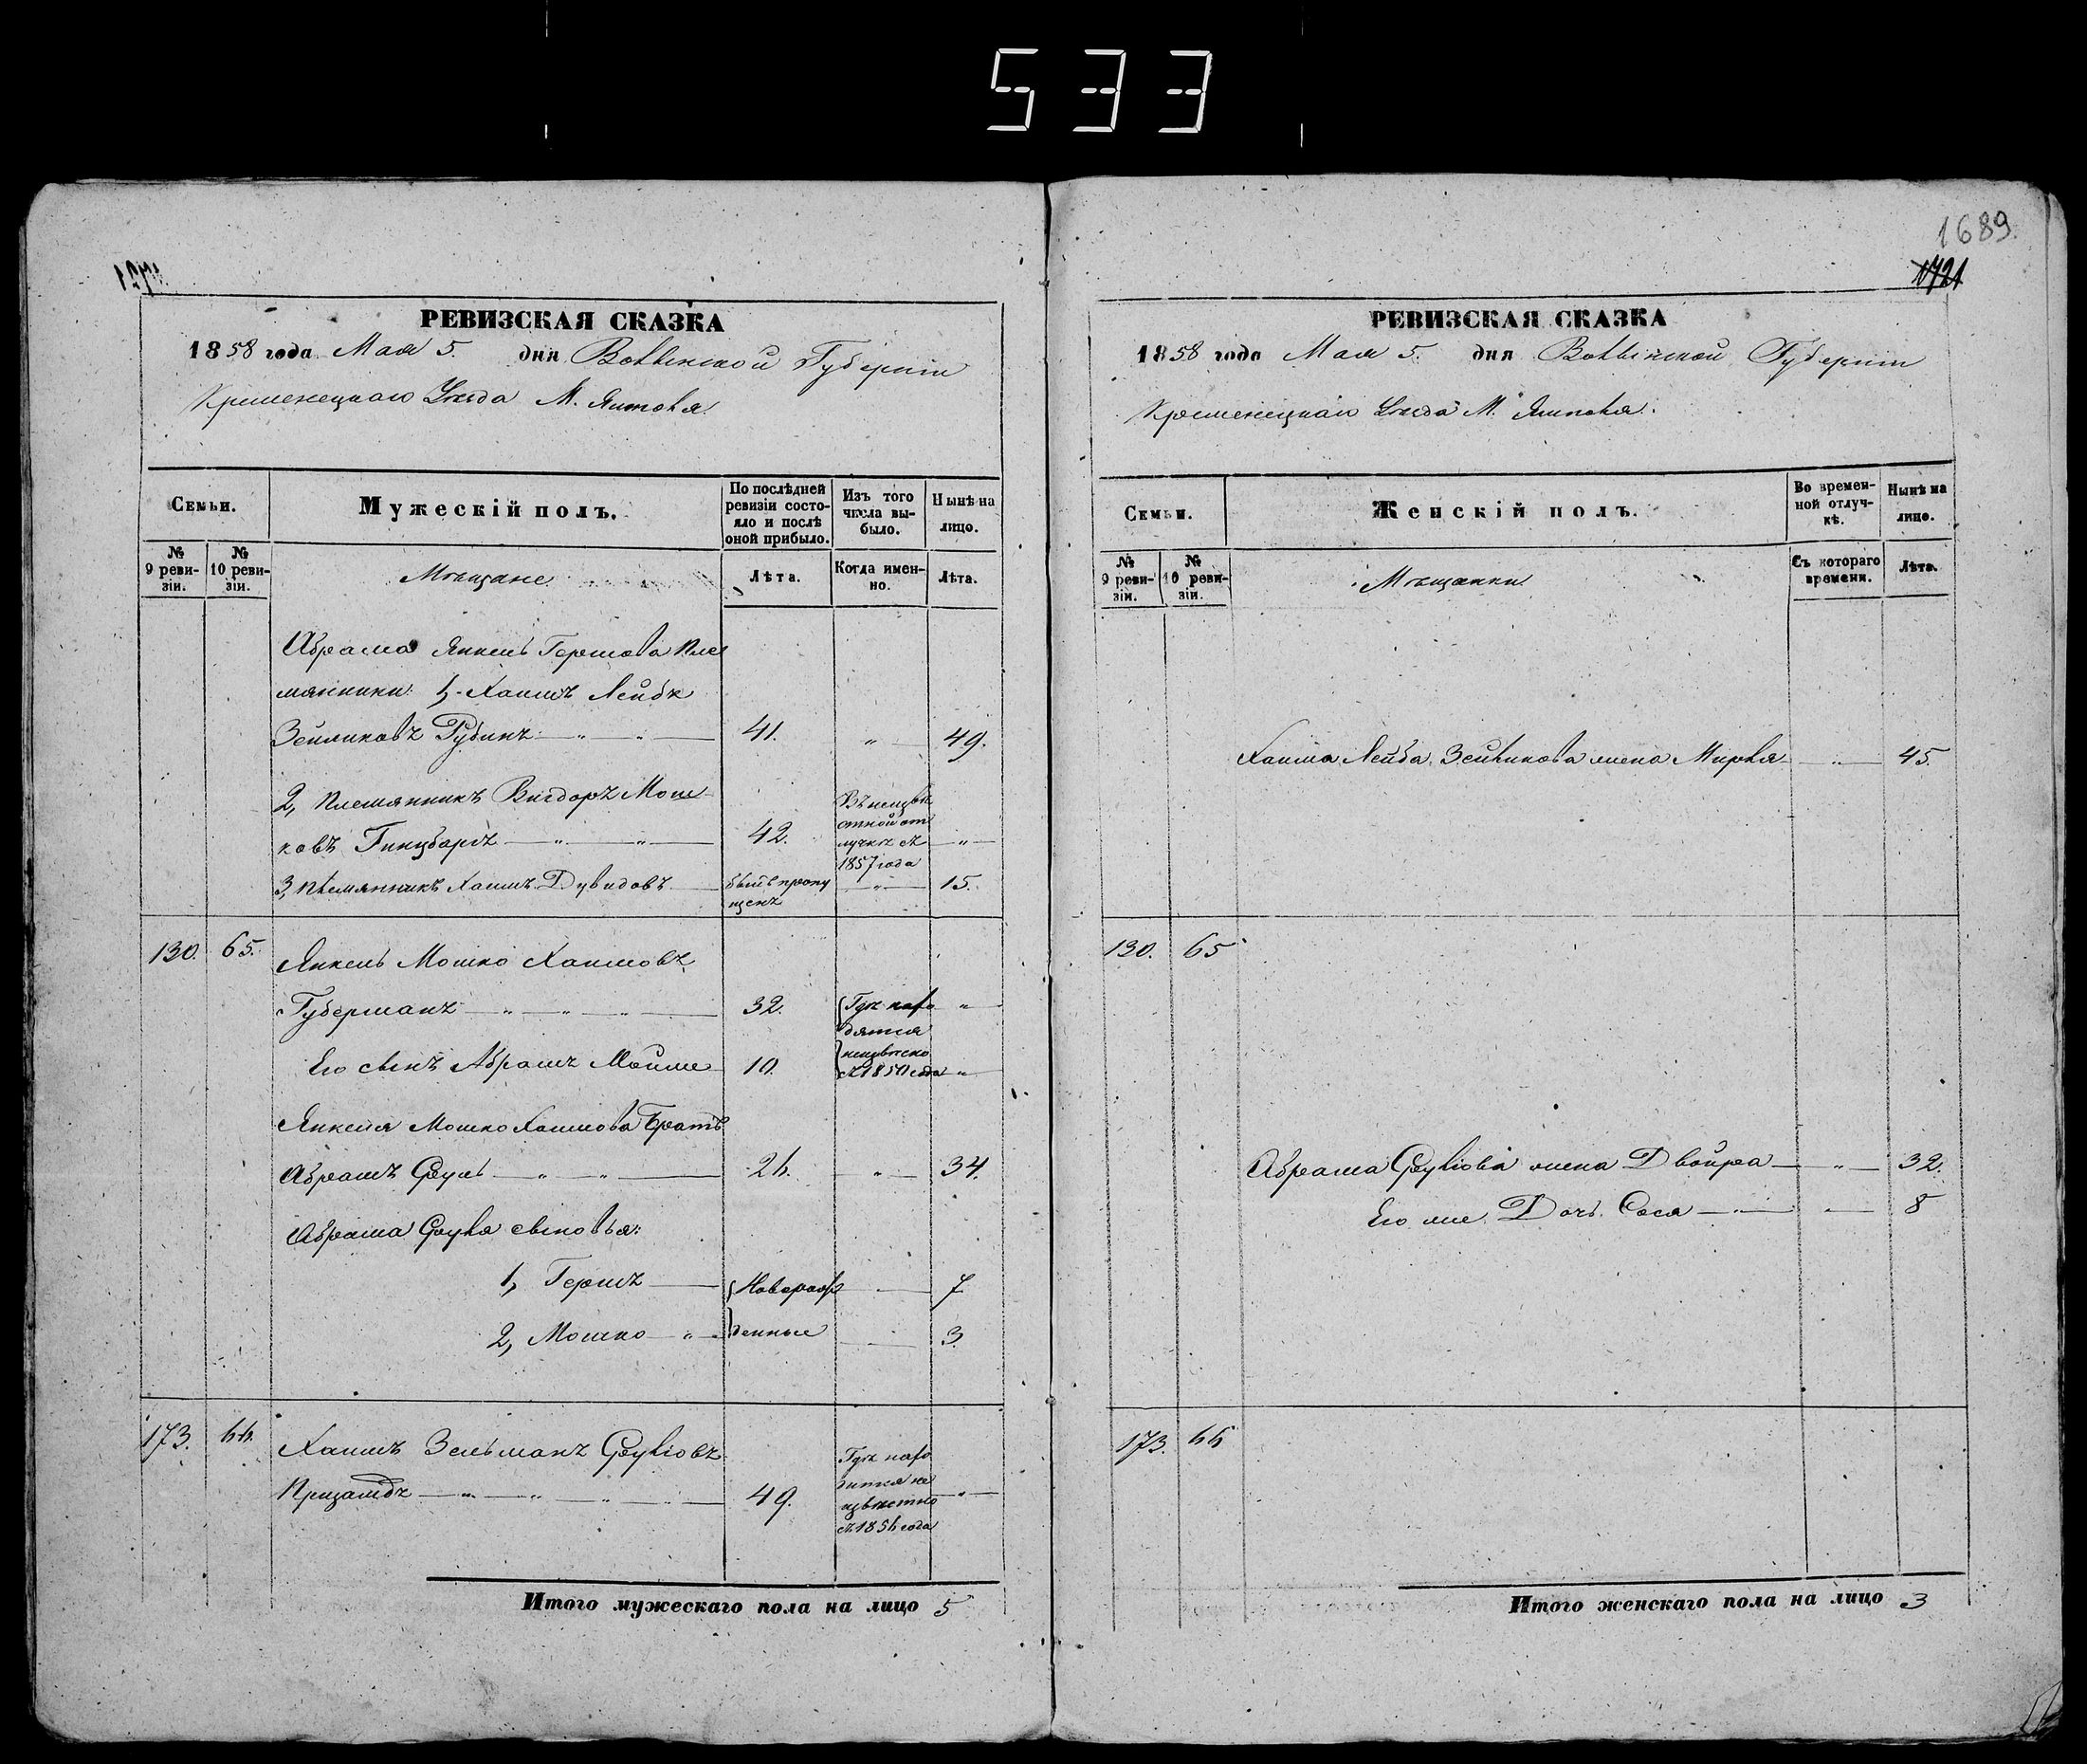 533
1689.
1721
РЕВИЗСКАЯ СКАЗКА
1858 года Мая 5. дня Волынской Губерніи
Кременецкаго Уѣзда М. Ямполя.
Семьи.
Мужескій полъ.
По послѣдней ревизіи состояло и послѣ оной прибыло.
Изъ того числа выбыло.
Нынѣ на лицо.
№ 9 ревизіи.
№ 10 ревизіи.
Мѣщане
Лѣта.
Когда именно.
Лѣта.
Абрама Янкель Гершова Пле
мянники: 1, Хаимъ Лейба
Зейликовъ Рубинъ — 41. — 49.
2, Племянникъ Вигдоръ Мош
ковъ Гинцбаргъ — 42. Въ неизвѣстной отлучкѣ съ 1857 года —
3, Племянникъ Хаимъ Дувидовъ — былъ пропущенъ — 15.
130. 65. Янкель Мошко Хаимовъ
Губерманъ — 32. Гдѣ нахо —
дятся
Его сынъ Абрамъ Мойше 10. неизвѣсно съ 1850 года —
Янкеля Мошко Хаимова Братъ
Абрамъ Сруль — 26. — 34.
Абрама Сруля сыновья:
1, Гершъ — Новорож — 7
2, Мошко — денные — 3.
173. 66. Хаимъ Зельманъ Сруліовъ
49. Гдѣ находится неизвѣстно съ 1856 года —
Итого мужескаго пола на лицо 5
РЕВИЗСКАЯ СКАЗКА
1858 года Мая 5. дня Волынской Губерніи
Кременецкаго Уѣзда М. Ямполя.
Семьи.
Женскій полъ.
Во временной отлучкѣ.
Нынѣ на лицо.
№ 9 ревизіи.
№ 10 ревизіи.
Мѣщанки
Съ котораго времени.
Лѣта.
Хаима Лейба Зейликова жена Мирля — 45.
130. 65
Абрама Сруліова жена Двойра — 32.
Его же Дочь Сося — 8
173. 66
Итого женскаго пола на лицо 3